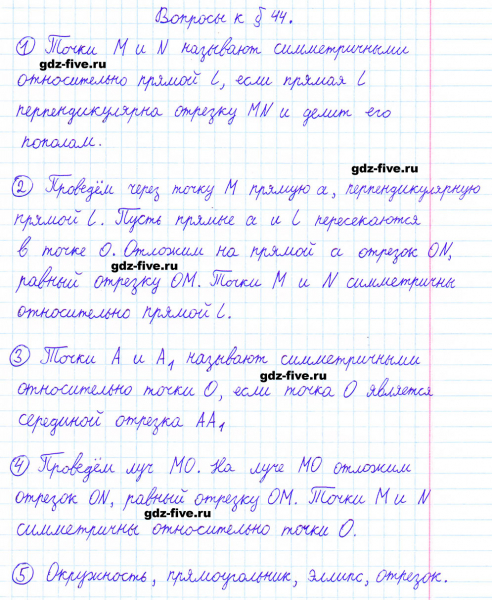 Вопросы к § 44.
① Точки M и N называют симметричными
gdz-five.ru
относительно прямой L, если прямая L
gdz-five.ru
перпендикулярна отрезку MN и делит его
пополам.
gdz-five.ru
② Проведём через точку M прямую a, перпендикулярную
gdz-five.ru
прямой L. Пусть прямые a и L пересекаются
в точке O. Отложим на прямой a отрезок ON,
gdz-five.ru
равный отрезку OM. Точки M и N симметричны
относительно прямой L.
③ Точки A и A₁ называют симметричными
gdz-five.ru
относительно точки O, если точка O является
серединой отрезка AA₁
④ Проведём луч MO. На луче MO отложим
отрезок ON, равный отрезку OM. Точки M и N
gdz-five.ru
симметричны относительно точки O.
⑤ Окружность, прямоугольник, эллипс, отрезок.